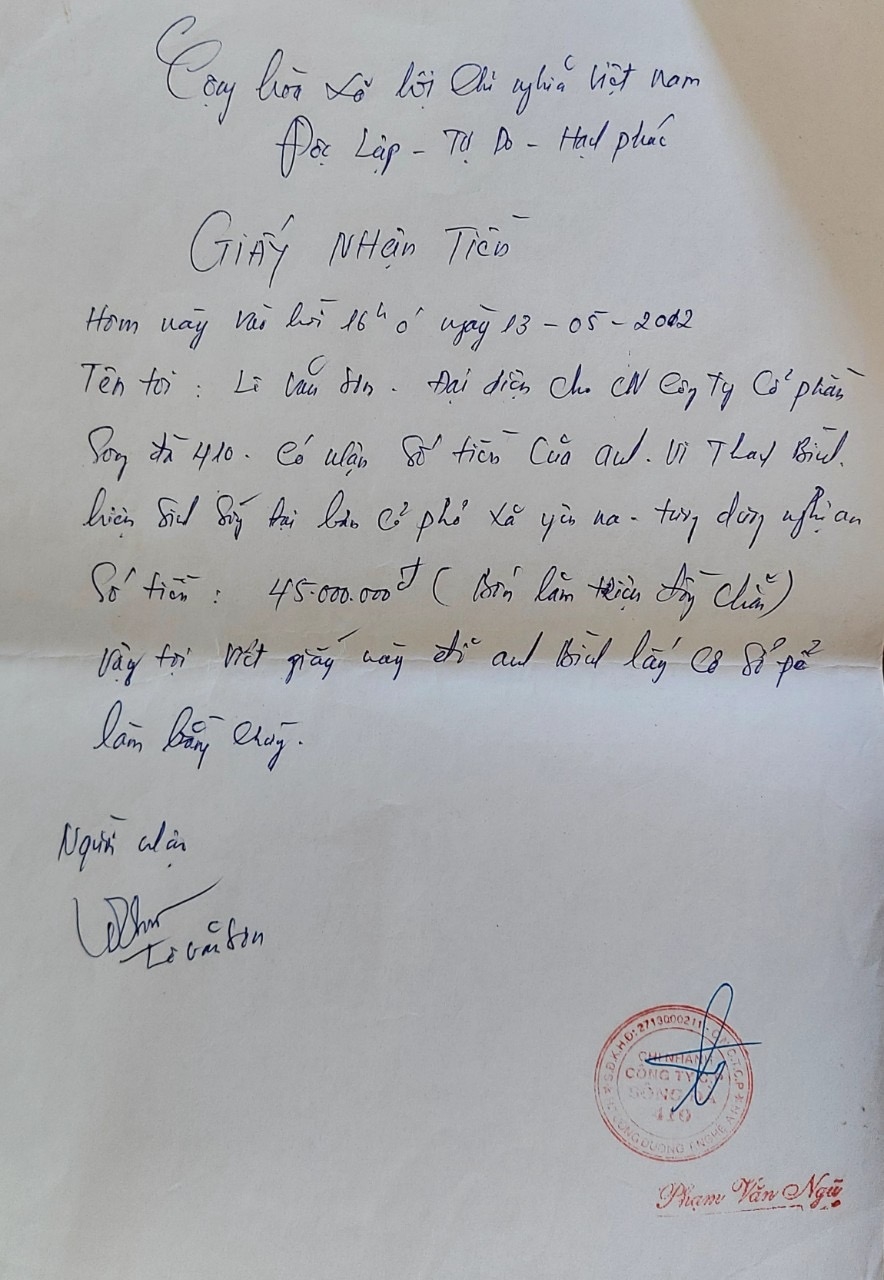 Cộng hòa Xã hội Chủ nghĩa Việt Nam
Độc Lập - Tự Do - Hạnh phúc
GIẤY NHẬN TIỀN
Hôm nay vào hồi 16h 0' ngày 13-05-2012
Tên tôi: Lê Văn Sơn. Đại diện cho CN Công Ty Cổ phần
Sông đà 410. Có nhận Số tiền Của anh. Vi Thanh Bình.
hiện Sinh Sống tại bản Cổ phó xã yên na - tương dương nghệ an
Số tiền: 45.000.000đ (Bốn lăm triệu đồng chẵn)
Vậy tôi Viết giấy này để anh Bình lấy Cơ Sở để
làm bằng chứng.
Người nhận
Lê Văn Sơn
S.Đ.K.H.Đ: 2713000211 - C.T.C.P
CHI NHÁNH
CÔNG TY C.P
SÔNG ĐÀ
410
H. TƯƠNG DƯƠNG T. NGHỆ AN
Phạm Văn Ngữ